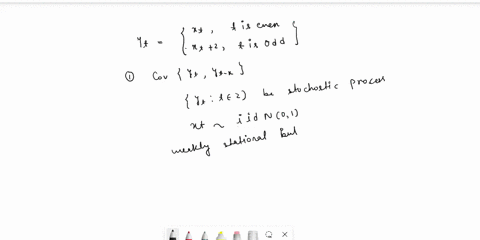 y_t = { x_t , t is even
x_t + 2, t is odd }
① Cov { y_t , y_{t-k} }
{ y_t : t ∈ Z } be stochastic proces
x_t ~ iid N(0,1)
weakly stational but